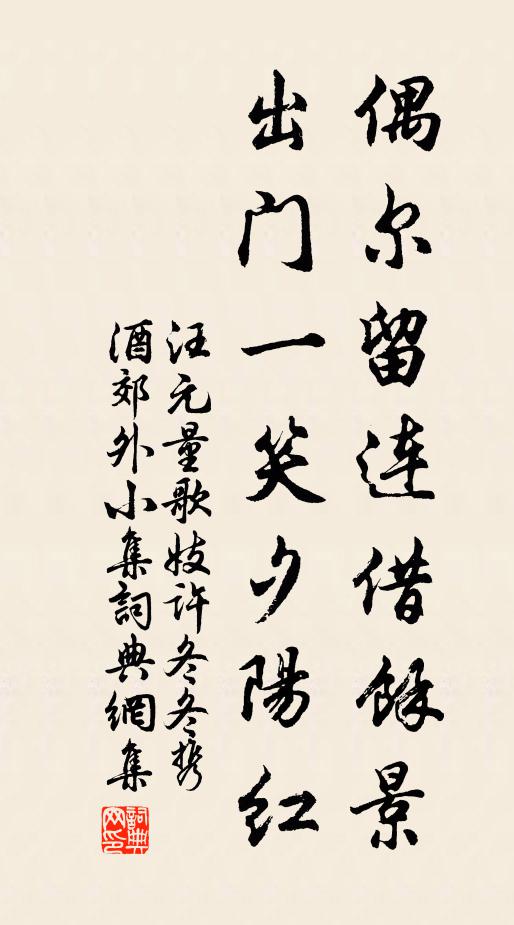 偶尔留连借馀景
出门一笑夕陽红
汪元量歌妓许冬冬携
酒郊外小集詞典網集
詞典
网印